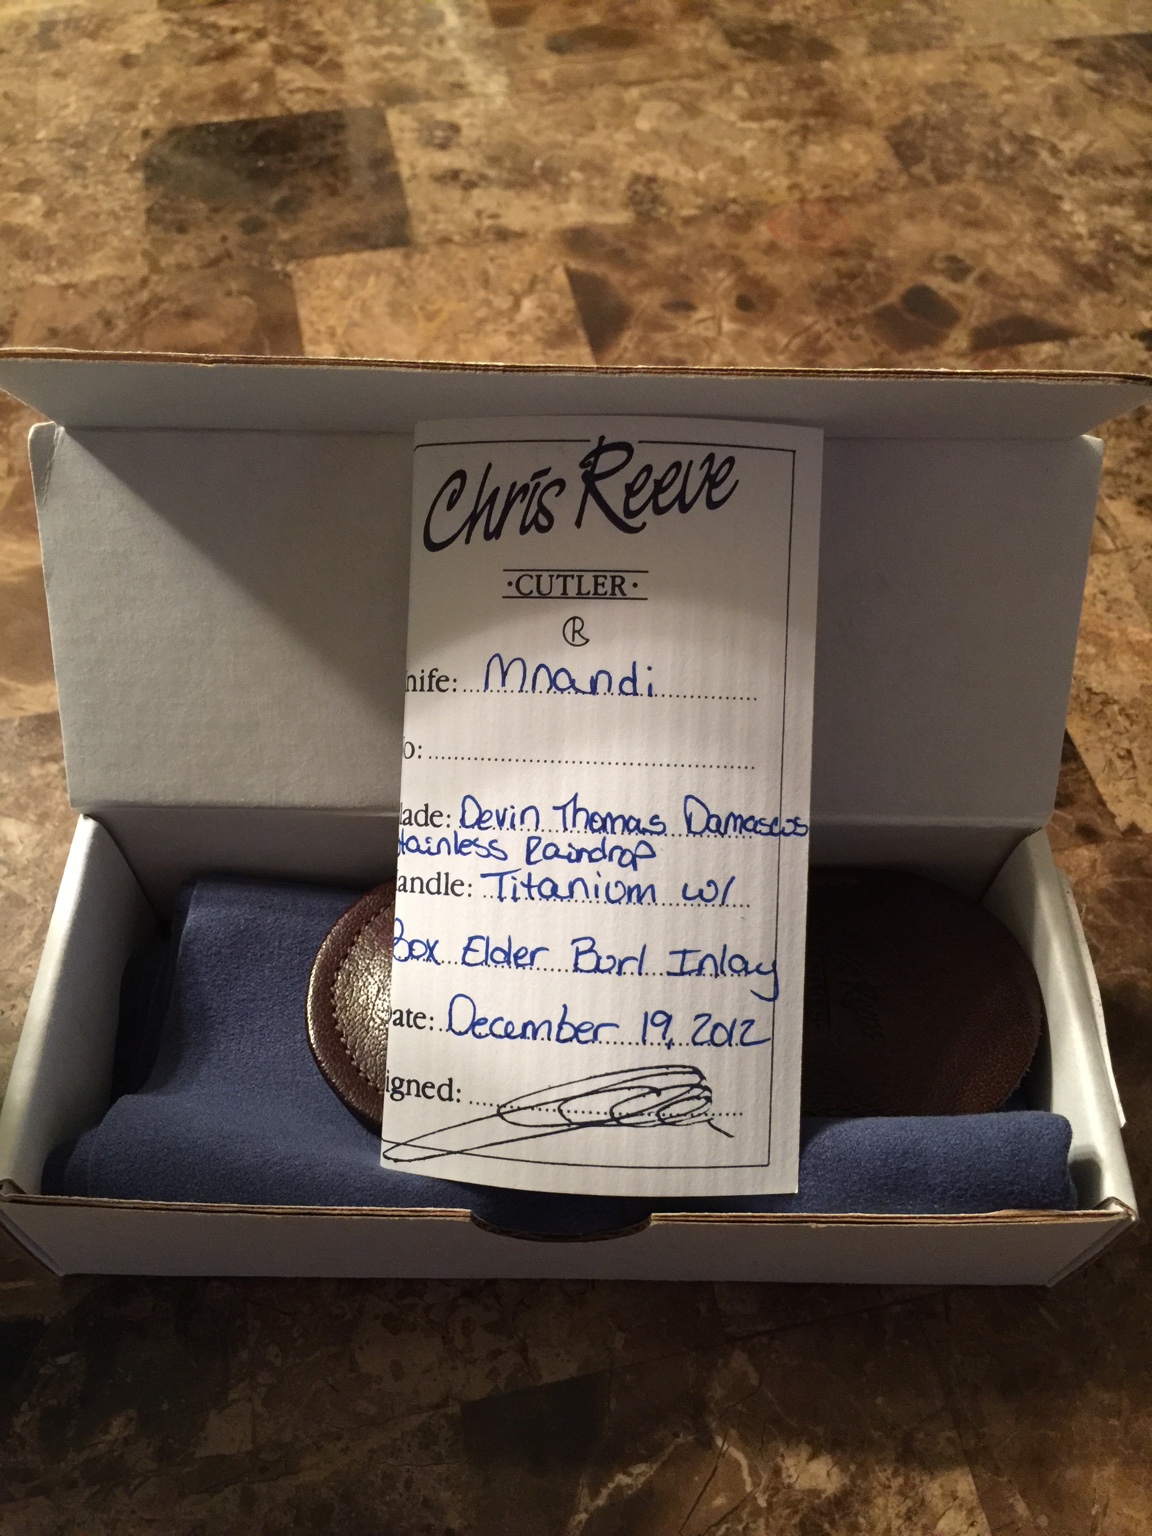 Chris Reeve
·CUTLER·
R
nife: Mnandi
o:
lade: Devin Thomas Damascus
Stainless Raindrop
andle: Titanium w/
Box Elder Burl Inlay
ate: December 19, 2012
igned: